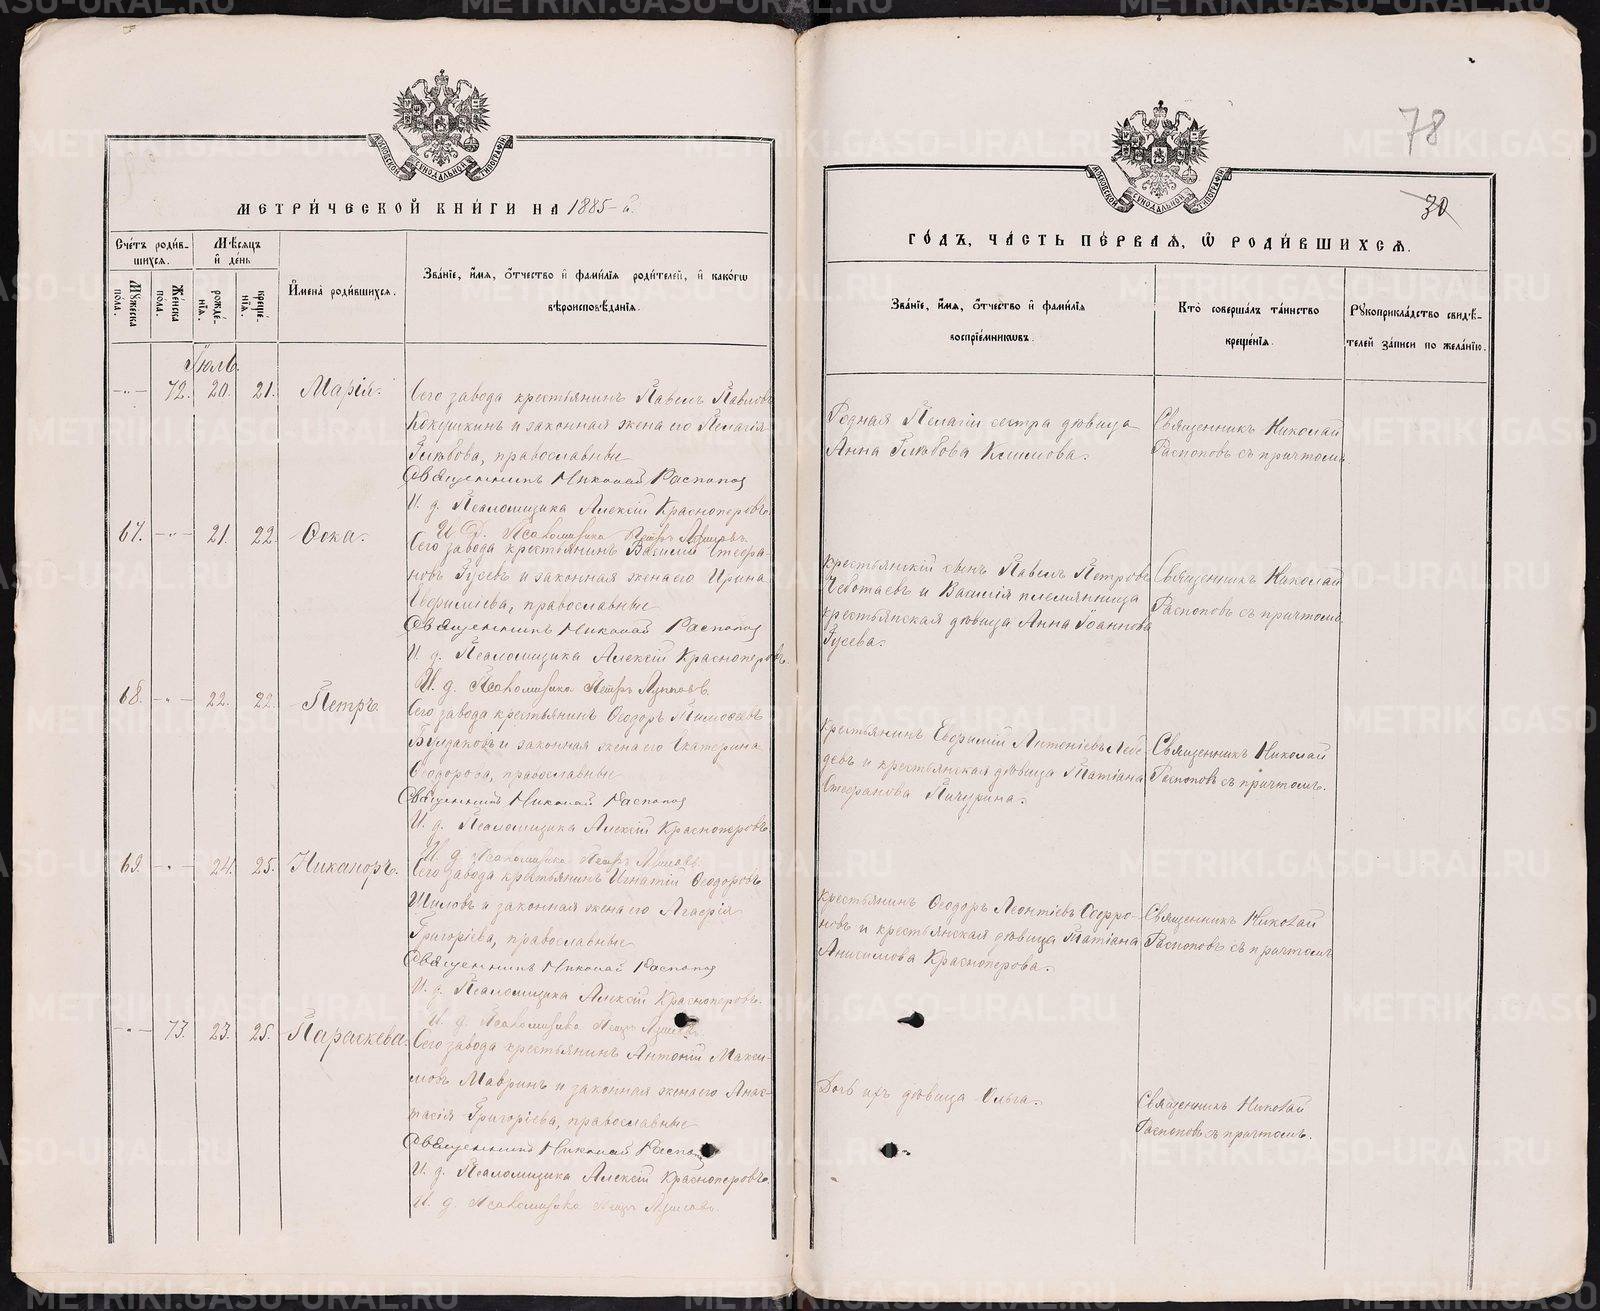 МОСКОВСКОЙ СѴНОДАЛЬНОЙ ТИПОГРАФІИ
МЕТРИ́ЧЕСКОЙ КНИ́ГИ НА 1885-й.
Сче́тъ роди́вшихся.
Мꙋ́жеска по́ла.
Же́нска по́ла.
Мѣ́сяцъ и҆ де́нь
рожде́нїѧ.
креще́нїѧ.
И҆мена̀ роди́вшихся.
Зва́нїе, и҆́мѧ, ѻ҆́тчество и҆ фами́лїѧ роди́телей, и҆ како́гѡ
вѣроисповѣ́данїѧ.
Іюль.
-"- 72. 20. 21. Марія. Сего завода крестьянинъ Павелъ Павловъ
Кокушкинъ и законная жена его Пелагія
Глѣбова, православные
Священникъ Николай Распопов
И. д. Псаломщика Алексій Красноперовъ.
И. Д. Псаломщика Петръ
67. -"- 21. 22. Ѳока. Сего завода крестьянинъ Василій Стефа-
новъ Гусевъ и законная жена его Ирина
Евфиміева, православные
Священникъ Николай Распопов
И. д. Псаломщика Алексій Красноперовъ.
И. д. Псаломщика Петръ
68. -"- 22. 22. Петръ. Сего завода крестьянинъ Ѳеодоръ Тимоѳеевъ
Булдаковъ и законная жена его Екатерина
Ѳеодорова, православные
Священникъ Николай Распопов
И. д. Псаломщика Алексій Красноперовъ.
И. д. Псаломщика Петръ
69. -"- 24. 25. Никаноръ. Сего завода крестьянинъ Игнатій Ѳеодоровъ
Шиловъ и законная жена его Агафія
Григоріева, православные
Священникъ Николай Распопов
И. д. Псаломщика Алексій Красноперовъ.
И. д. Псаломщика Петръ
-"- 73. 23. 25. Параскева. Сего завода крестьянинъ Антоній Макси-
мовъ Мавринъ и законная жена его Анас-
тасія Григоріева, православные
Священникъ Николай Распопов
И. д. Псаломщика Алексій Красноперовъ.
И. д. Псаломщика Петръ
78
30
МОСКОВСКОЙ СѴНОДАЛЬНОЙ ТИПОГРАФІИ
ГО́ДЪ, ЧА́СТЬ ПЕ́РВАѦ, Ѽ РОДИ́ВШИХСѦ.
Зва́нїе, и҆́мѧ, ѻ҆́тчество и҆ фами́лїѧ
воспрїе́мникѡвъ.
Кто̀ соверша́лъ та́инство
креще́нїѧ.
Рꙋкоприкла́дство свидѣ́-
телей за́писи по жела́нїю.
Родная Пелагіи сестра дѣвица
Анна Глѣбова Климова.
Священникъ Николай
Распоповъ съ причтомъ.
Крестьянскій сынъ Павелъ Петровъ
Чеботаевъ и Василія племянница
крестьянская дѣвица Анна Іоаннова
Гусева.
Священникъ Николай
Распоповъ съ причтомъ.
Крестьянинъ Евфимій Антоніевъ Лебе-
девъ и крестьянская дѣвица Татіана
Стефанова Пичугина.
Священникъ Николай
Распоповъ съ причтомъ.
Крестьянинъ Ѳеодоръ Леонтіевъ Софро-
новъ и крестьянская дѣвица Татіана
Анисимова Красноперова.
Священникъ Николай
Распоповъ съ причтомъ
Дочь ихъ дѣвица Ольга.
Священникъ Николай
Распоповъ съ причтомъ.
METRIKI.GASO-URAL.RU